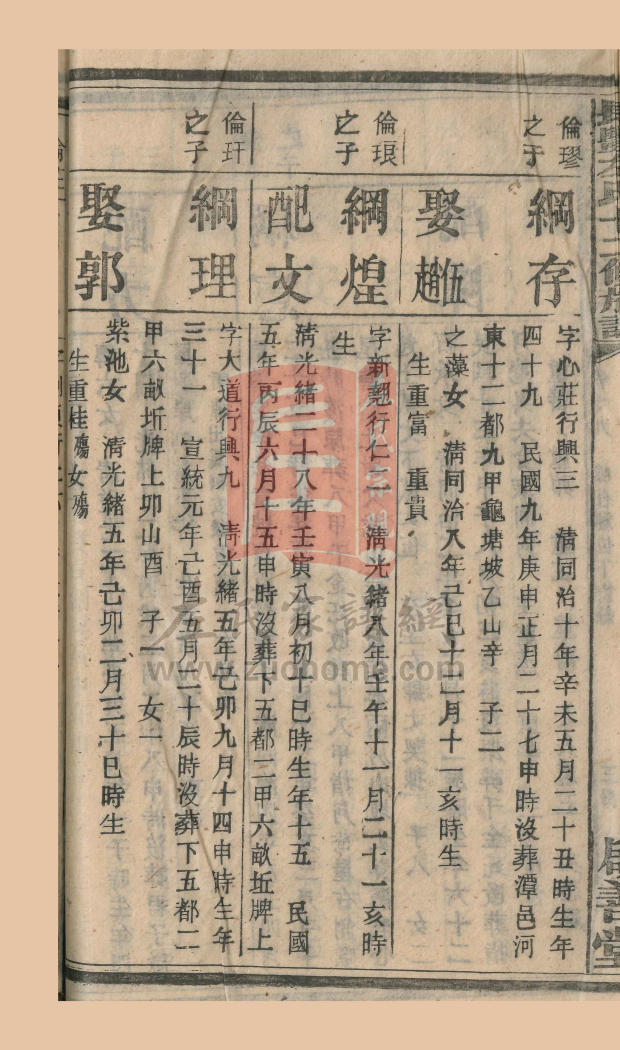 倫璆之子
綱存
字心莊行興三 清同治十年辛未五月二十丑時生年
四十九 民國九年庚申正月二十七申時沒葬潭邑河
東十二都九甲龜塘坡乙山辛 子二
娶趙伍
之藻女 清同治八年己巳十二月十一亥時生
生重富 重貴
倫琅之子
綱煌
字新翹行仁一 清光緒八年壬午十一月二十一亥時
生
配文
清光緒二十八年壬寅八月初十巳時生年十五 民國
五年丙辰六月十五申時沒葬下五都二甲六畝坵牌上
倫玕之子
綱理
字大道行興九 清光緒五年己卯九月十四申時生年
三十一 宣統元年己酉五月二十辰時沒葬下五都二
甲六畝坵牌上卯山酉 子一 女一
娶郭
紫池女 清光緒五年己卯二月三十巳時生
生重桂殤女殤
左氏家譜網
www.zuohome.com